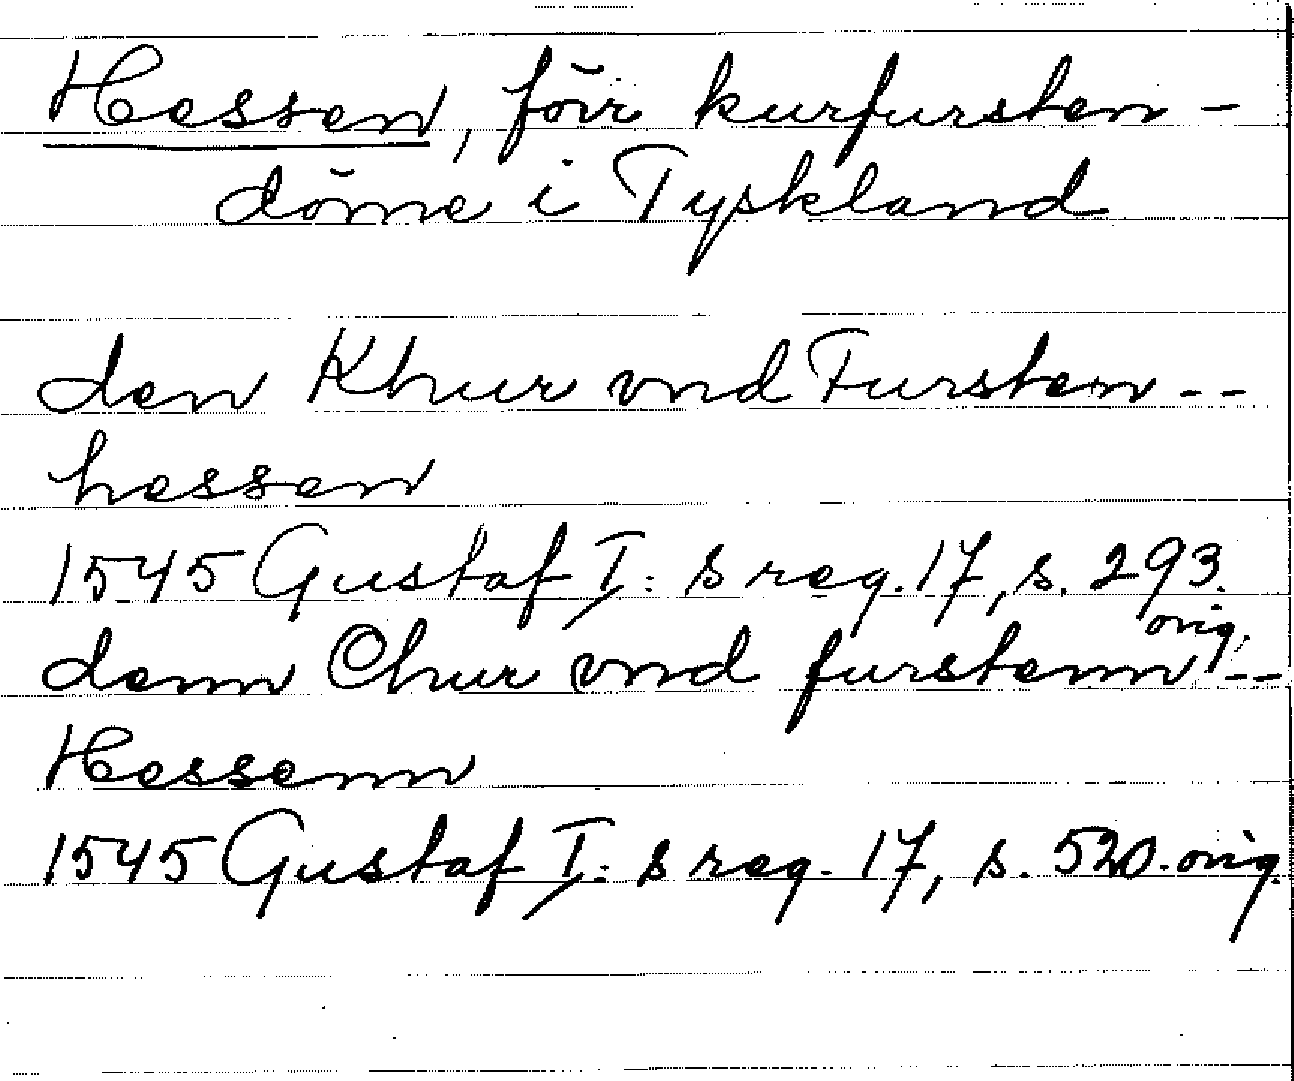 Hessen, förr kurfursten-
döme i Tyskland
den Khur vnd Fursten --
hessen
1545 Gustaf I: s reg. 17, s. 293.
orig.
denn Chur vnd furstenn --
Hessenn
1545 Gustaf I: s reg. 17, s. 520. orig.